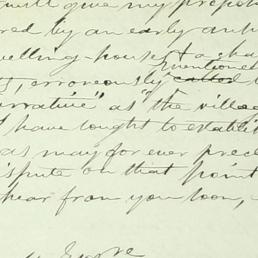 will give my prepos
red by an early ans
welling-house & a sha
mentioned
, erroneously called
narrative" as "the villag
I have sought to establi
as may for ever prece
ispute on that point
hear from you soon,